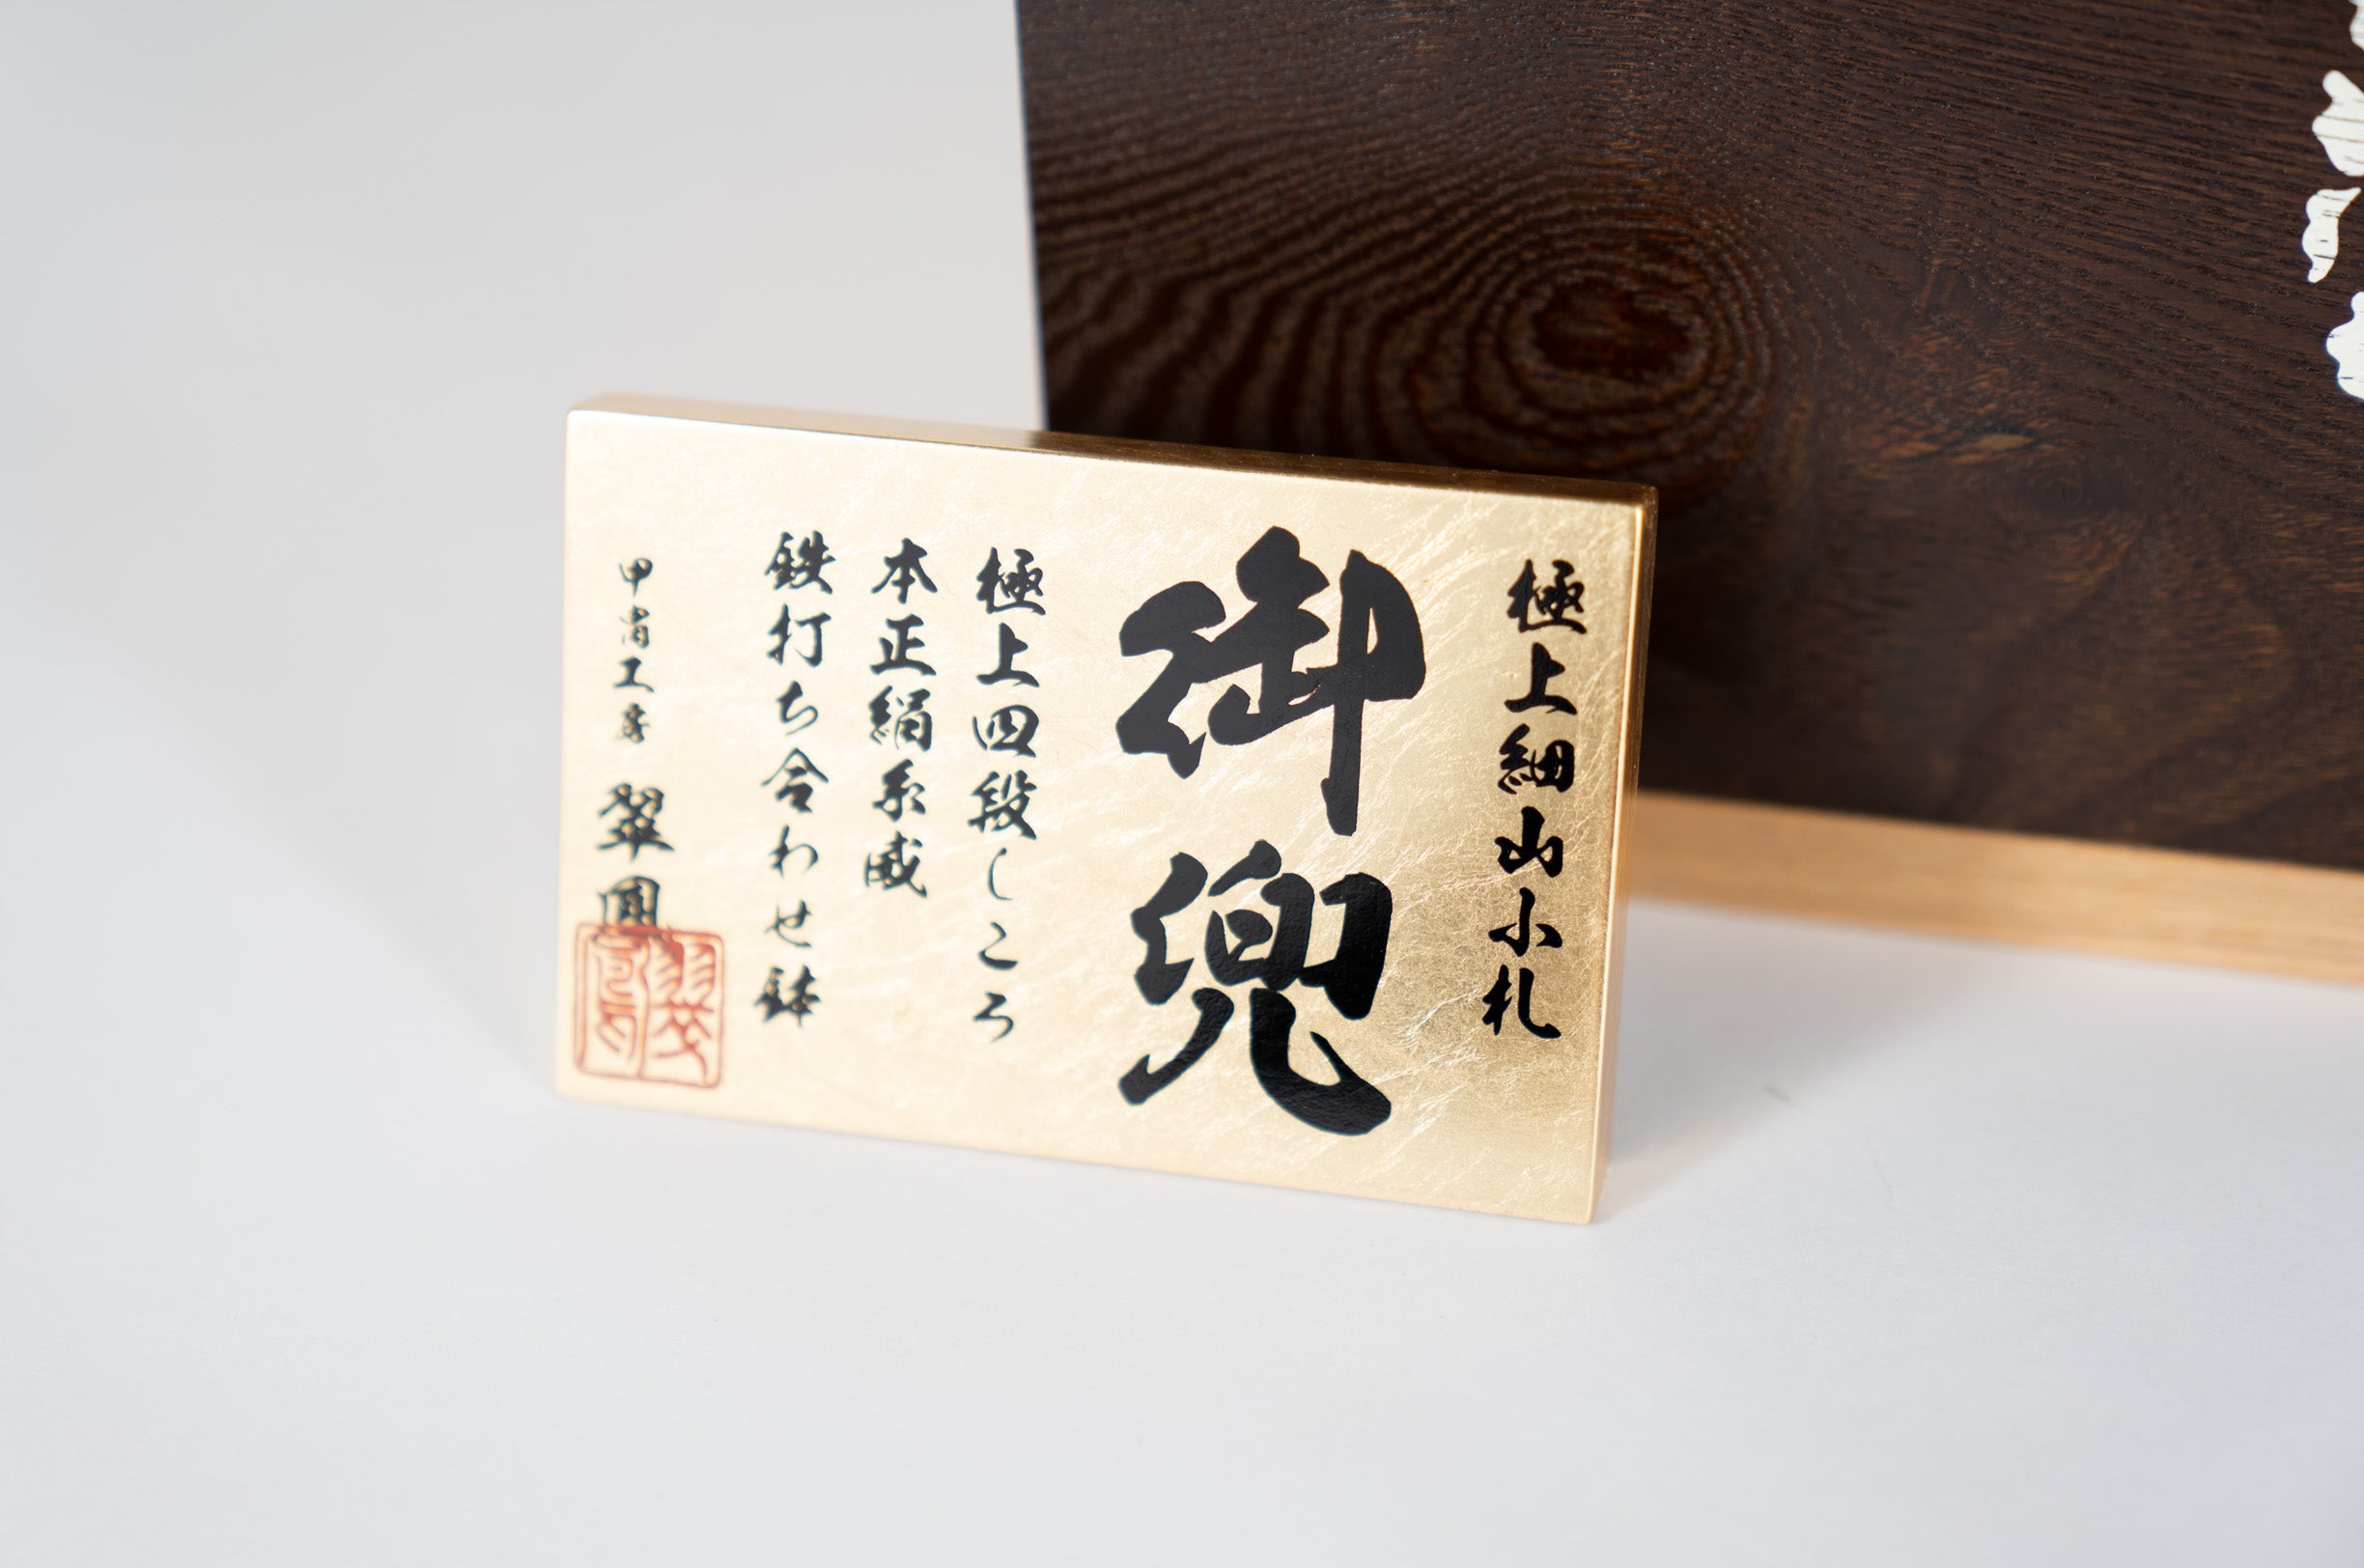 極上細山小札
御兜
極上四段しころ
本正絹糸威
鉄打ち合わせ鉢
甲冑工房 翠鳳